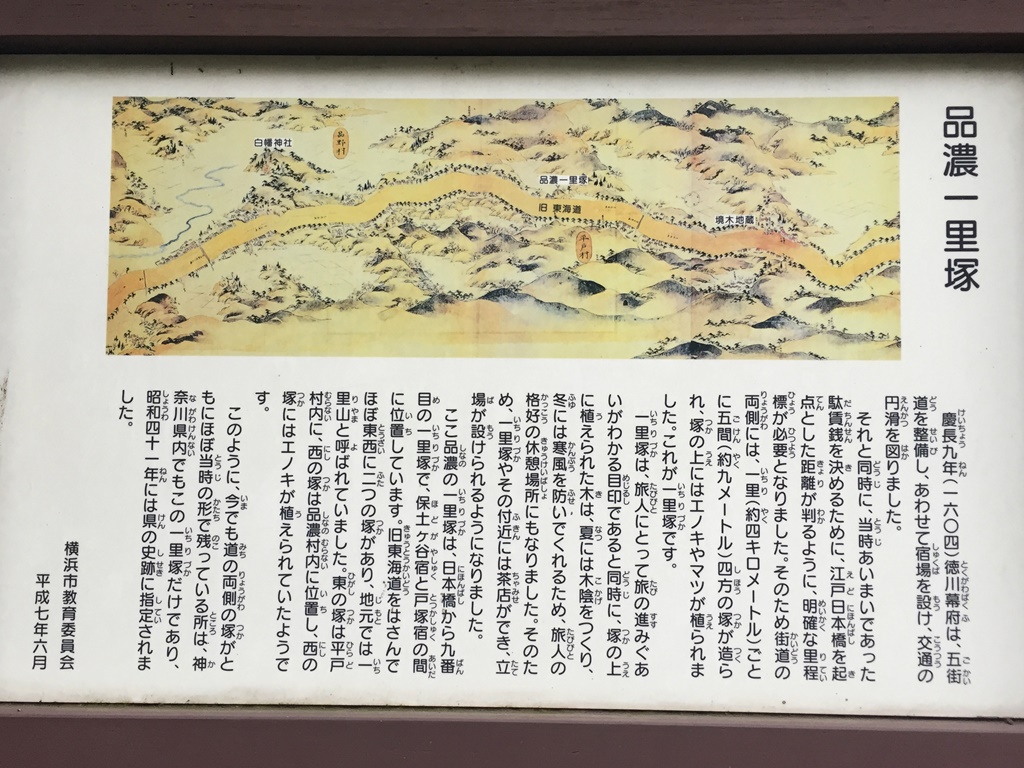 品濃一里塚
白幡神社
品野村
品濃一里塚
旧 東海道
平戸村
境木地蔵
慶長九年(一六〇四)徳川幕府は、五街
道を整備し、あわせて宿場を設け、交通の
円滑を図りました。
それと同時に、当時あいまいであった
駄賃銭を決めるために、江戸日本橋を起
点とした距離が判るように、明確な里程
標が必要となりました。そのため街道の
両側には、一里(約四キロメートル)ごと
に五間(約九メートル)四方の塚が造ら
れ、塚の上にはエノキやマツが植られま
した。これが一里塚です。
一里塚は、旅人にとって旅の進みぐあ
いがわかる目印であると同時に、塚の上
に植えられた木は、夏には木陰をつくり、
冬には寒風を防いでくれるため、旅人の
格好の休憩場所にもなりました。そのた
め、一里塚やその付近には茶店ができ、立
場が設けられるようになりました。
ここ品濃の一里塚は、日本橋から九番
目の一里塚で、保土ケ谷宿と戸塚宿の間
に位置しています。旧東海道をはさんで
ほぼ東西に二つの塚があり、地元では一
里山と呼ばれていました。東の塚は平戸
村内に、西の塚は品濃村内に位置し、西の
塚にはエノキが植えられていたようで
す。
このように、今でも道の両側の塚がと
もにほぼ当時の形で残っている所は、神
奈川県内でもこの一里塚だけであり、
昭和四十一年には県の史跡に指定されま
した。
横浜市教育委員会
平成七年六月